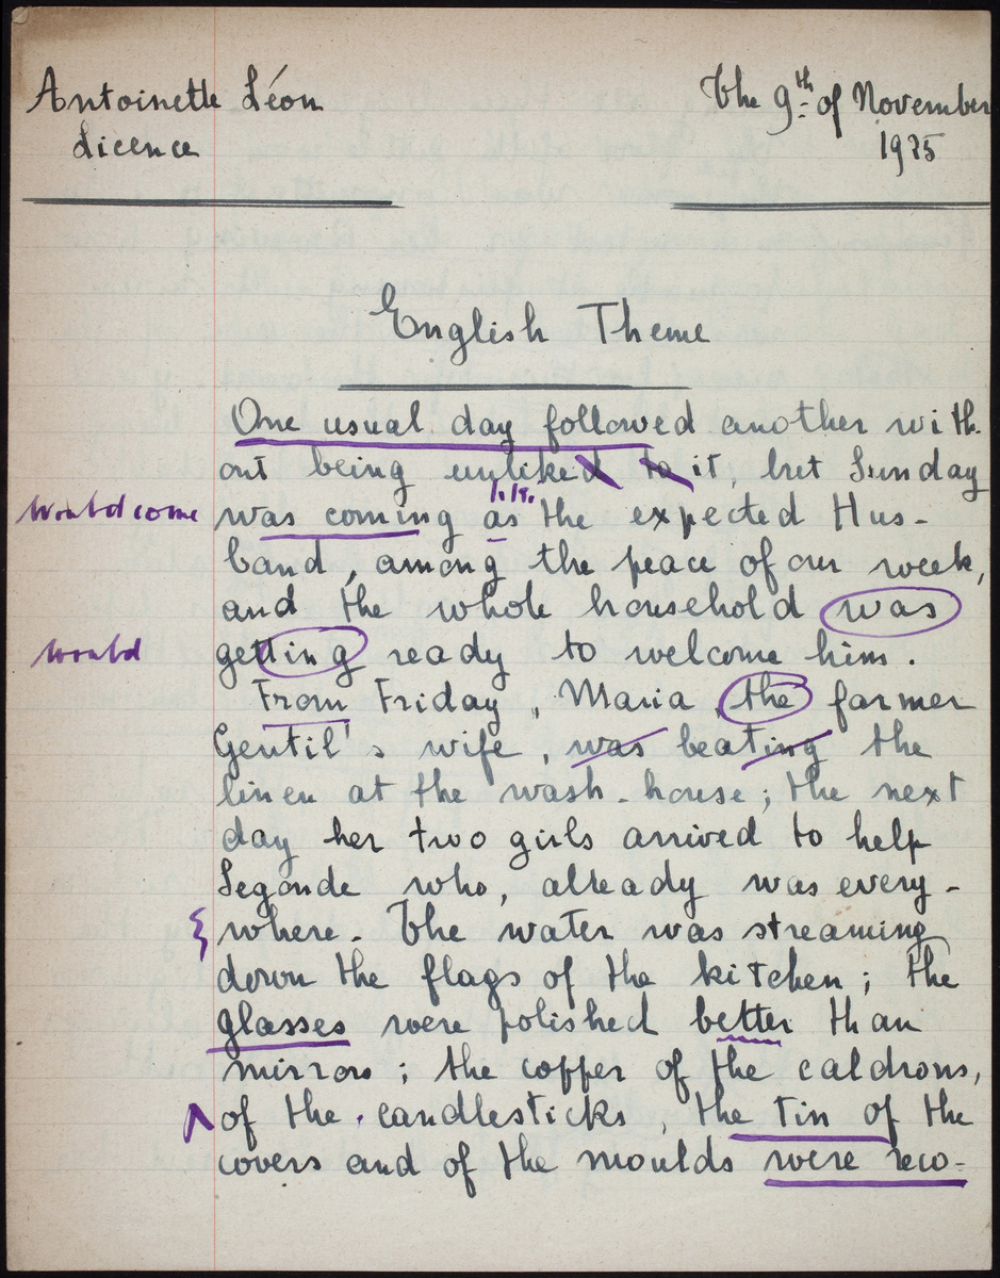 Antoinette Léon
Licence
The 9th of November
1925
English Theme
One usual day followed another with
out being unliked to it, but Sunday
would come
was coming as the expected Hus-
band, among the peace of our week,
and the whole household was
would
getting ready to welcome him.
From Friday, Maria, the farmer
Gentil's wife, was beating the
linen at the wash-house; the next
day her two girls arrived to help
Segonde who, already was every-
where. The water was streaming
down the flags of the kitchen; the
glasses were polished better than
mirrors; the copper of the caldrons,
of the candlesticks, the tin of the
covers and of the moulds were reco-